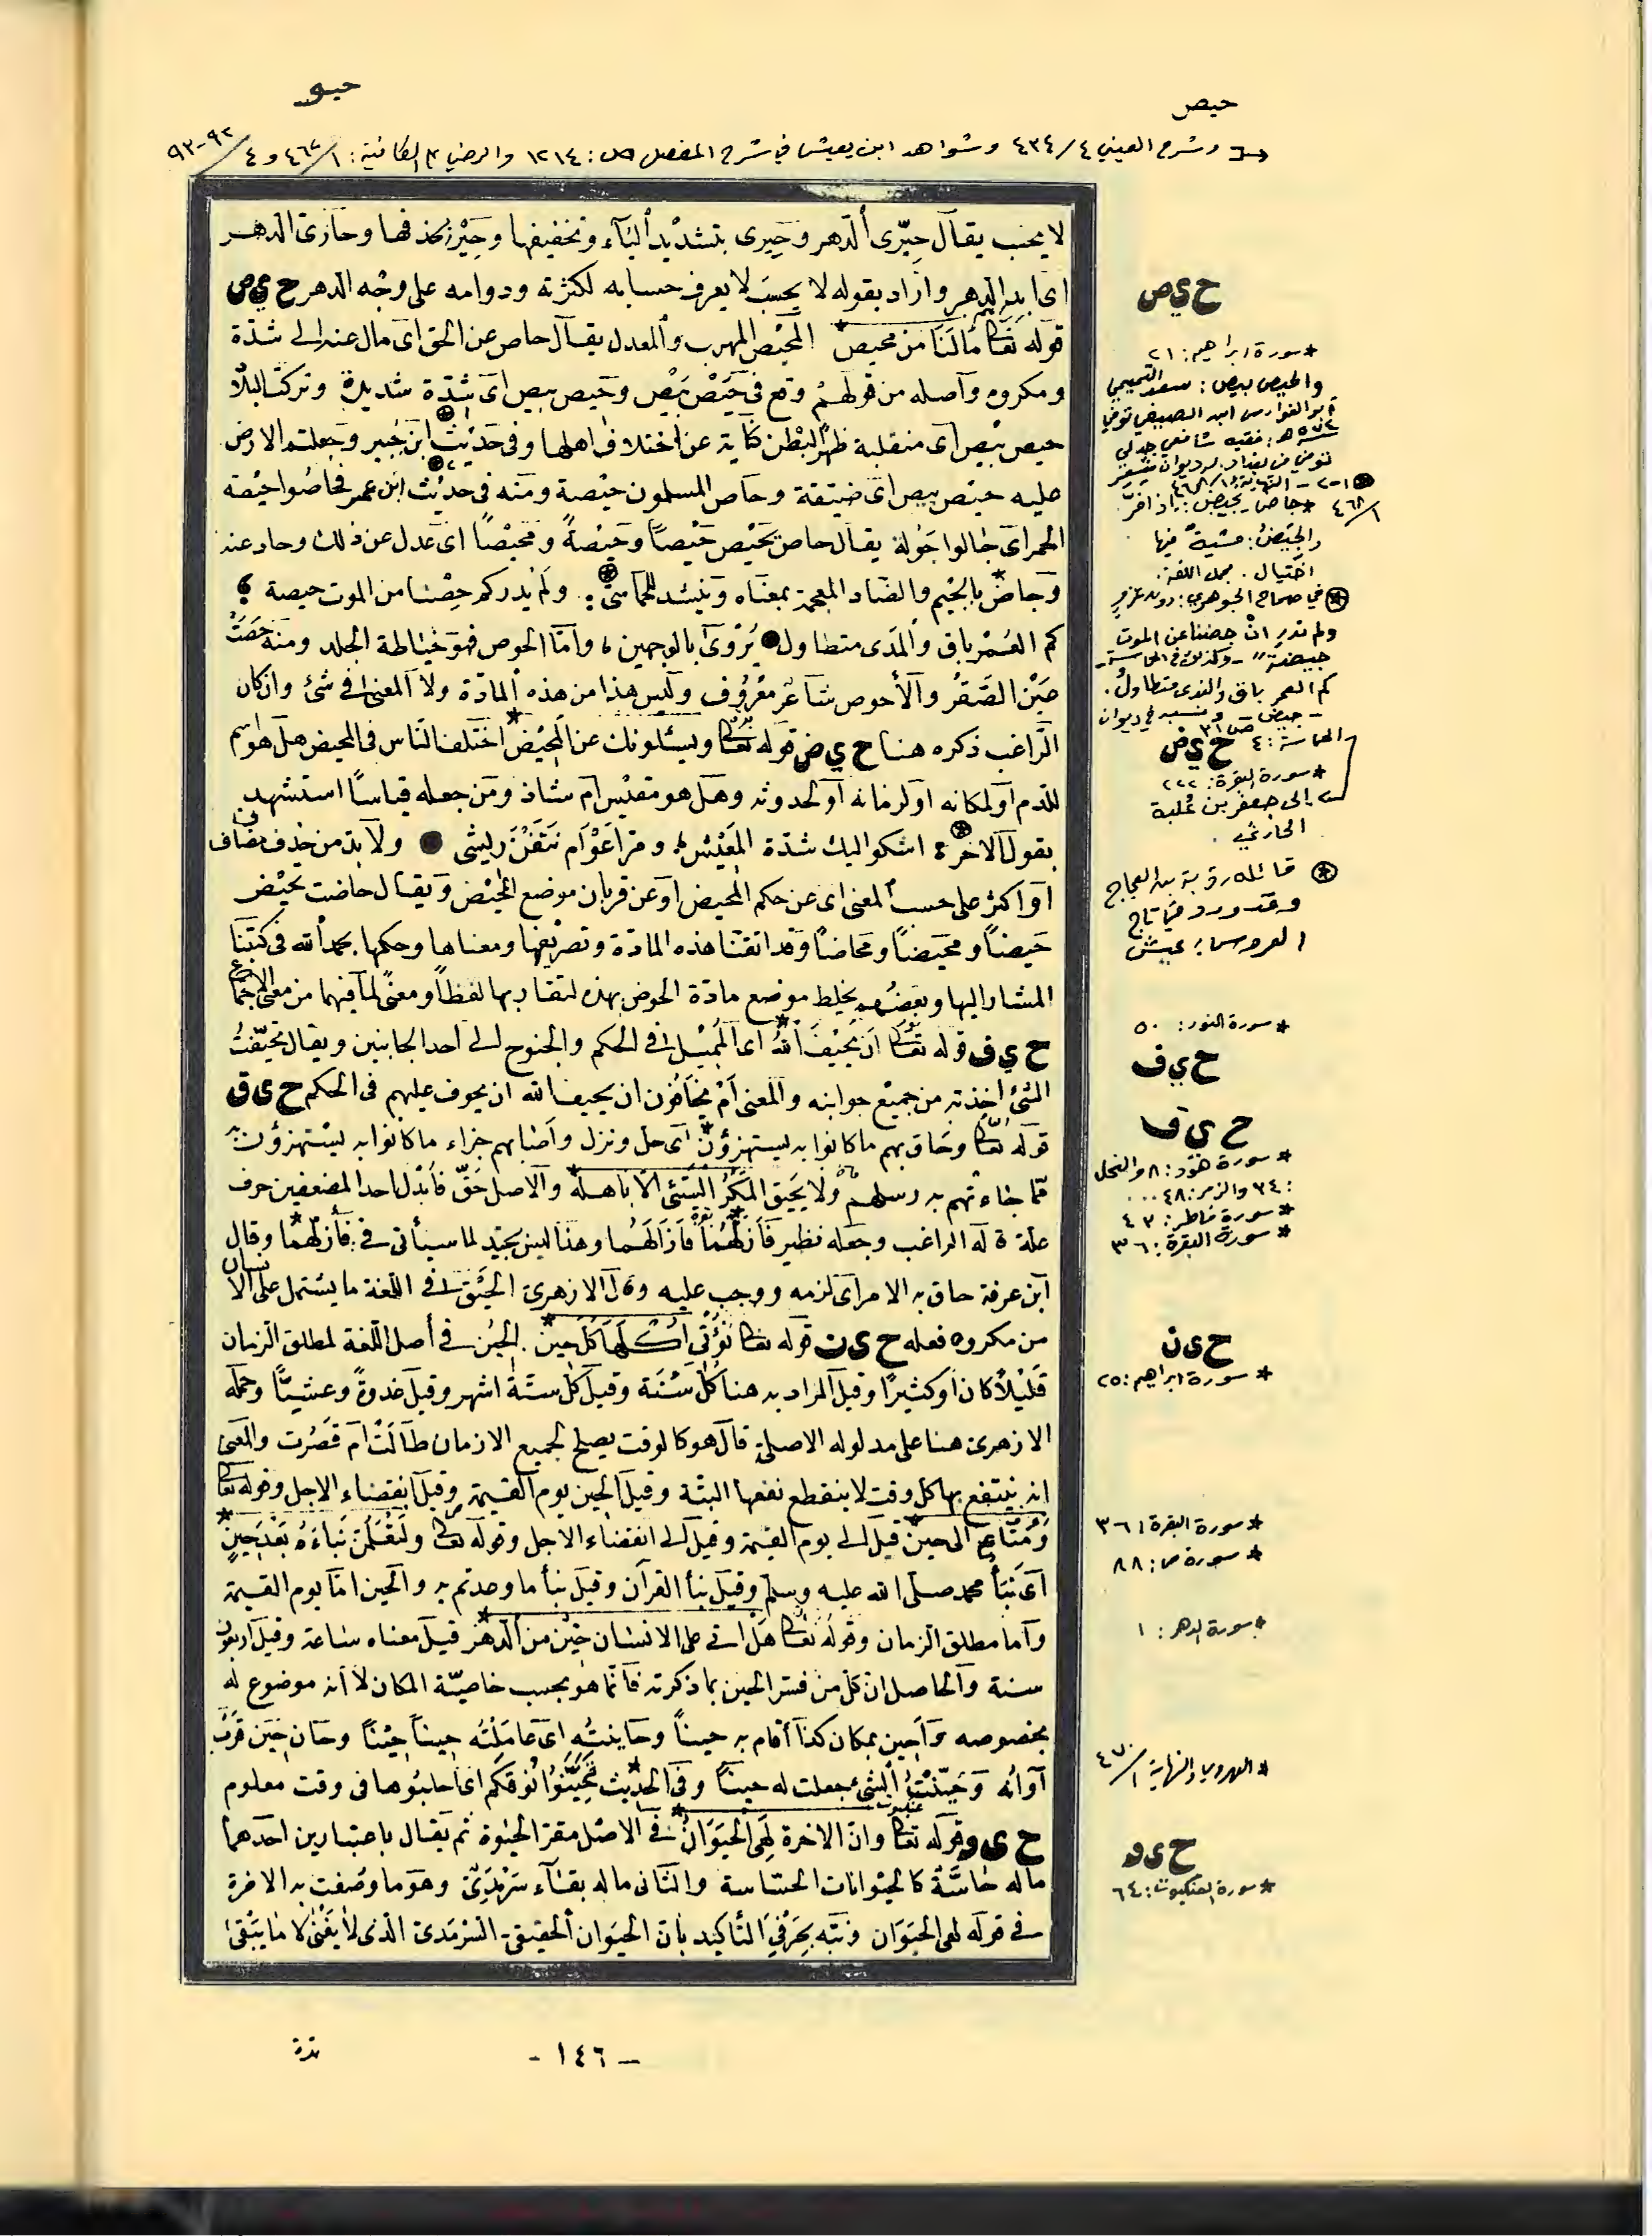 حيص
حيو
وشرح العيني ٤/٤٣٤ وشواهد ابن يعيش في شرح المفصل ص: ١٢١٤ والرضي الكافية: ١/٤٦٧ و ٤/٩٢-٩٣
لا يحسب يقال حِيْرىّ الدهر وحِيرى بتشديد الياء وتخفيفها وحِيْر بحذفها وحارى الدهر
اى ابد الدهر واراد بقوله لا يحسب لا يعرف حسابه لكثرته ودوامه على وجه الدهر ح ي ص
قوله تعالى مالنا من محيص* المحيص المهرب والمعدل يقال حاص عن الحق اى مال عنه الى شدّة
ومكروه وأصله من قولهم وقع فى حَيْصَ بَيْصَ وحيص بيص اى شدّة شديدة وتركت البلاد
حيص بيص اى منقلبة ظهرًا لبطن كناية عن اختلاف اهلها وفى حديث ابن جُبير وجعلتم الارض
عليه حيص بيص اى ضيّقة وحاص المسلمون حيصة ومنه فى حديث ابن عمر فحاصُوا حيصة
الحمر اى جالوا جَولة يقال حاص يحيص حيصًا وحيصةً ومحيصًا اى عدل عن ذلك وحاد عنه
وجاض بالجيم والضاد المعجمة بمعناه وينشد للحماسىّ: ولم يدركم حِصْنا من الموت حيصة ؛
كم العُمْر باق والمَدى متطاول ● يُرْوىٰ بالوجهين، وامّا الحوص فهو خياطة الجلد ومنه حصتُ
عَيْن الصَّقرُ والأحوص شاعر معْرُوف وليس هذا من هذه المادّة ولا المعنى فى شئ وان كان
الراغب ذكره هنا ح ي ض قوله تعالى ويسئلونك عن المحيض* اختلف الناس فى المحيض هل هو اسم
للدم او لمكانه او لزمانه او لحدوثه وهل هو مقيس ام شاذ ومن جعله قياسًا استشهد
بقول الآخر ؛ اشكوا اليك شدّة المَعيْش؛ ومرّ اعوَام نتفن ريشى ● ولا بدّ من حذف مضاف
او اكثر على حسب المعنى اى عن حكم المحيض او عن قربان موضع المحيض ويقال حاضت تحيض
حَيضاً ومحيضاً ومحاضاً وقد اتقنّا هذه المادّة وتصريفها ومعناها وحكمها بحمد الله فى كتبنا
المشار اليها وبعضهم يخلط موضع مادّة الحوض بهذه لتقاربها لفظاً ومعنًى لما فيهما من معنى الاجتماع
ح ي ف قوله تعالى ان يحيف الله* اى المَيْل فى الحكم والجنوح الى احد الجانبين ويقال تحيّفتُ
الشئ اخذته من جميع جوانبه والمعنى ام يخافون ان يحيف الله ان يجوف عليهم فى الحكم ح ى ق
قوله تعالى وحاق بهم ما كانوا به يستهزؤن* اى حل ونزل وأصابهم جزاء ما كانوا به يستهزؤن
ممّا جاءتهم به رسلهم ولا يَحيق المَكرُ السّيئ الا باهله* والاصل حَقّ فأبدل احد المضعفين حرف
علة قاله الراغب وجعله نظير فأزلّهُما* فأزالَهُما وهذا ليس بجيّد لما سيأتى فى: فأزلّهما وقال
ابن عرفة حاق به الامر اى لزمه ووجب عليه وقال الازهرى الحَيْق فى اللغة ما يشتمل على الانسان
من مكروه فعله ح ى ن قوله تعالى تؤتى اكلها كل حين* الحين فى أصل اللغة لمطلق الزمان
قليلاً كان او كثيرًا وقيل المراد به هنا كل سَنَة وقيل كل ستّة اشهر وقيل غدوةً وعشيًّا وحمله
الازهرى هنا على مدلوله الاصلى قال هو كالوقت يصلح لجميع الازمان طالَتْ ام قَصُرت والمعنى
انه ينتفع بها كل وقت لا ينقطع نفعها البتّة وقيل الحين يوم القيمة وقيل انقضاء الاجل وقوله تعالى
ومتاعٌ الى حين* قيل الى يوم القيمة وقيل الى انقضاء الاجل وقوله تعالى ولتعلمنّ نباءَهُ بعْدَ حِينٍ*
اى نبأ محمد صلى الله عليه وسلم وقيل نبأ القرآن وقيل نبأ ما وعدتم به والحين امّا يوم القيمة
وامّا مطلق الزمان وقوله تعالى هَلْ اتى على الانسان حِيْن من الدهْر* قيل معناه ساعة وقيل اربعون
سنة والحاصل ان كل من فسّر الحين بما ذكرته فانّما هو بحسب خاصيّة المكان لا انه موضوع له
بخصوصه وأحين بمكان كذا أقام به حيناً وحاينتُه اى عاملْتُه حيناً حيْناً وحان حين قرُبَ
أوانُه وحيّنْتُ الشئ جعلت له حيناً وفى الحديث تحيّنُوا نُوقكم اى احلبُوها فى وقت معلوم
ح ى و قوله تعالى وانّ الاخرة لهى الحَيَوَان* فى الاصْل مقرّ الحيٰوة ثم يقال باعتبارين احدهما
ماله حاسَّة كالحيوانات الحسّاسة والثانى ماله بقآء سَرْمَدِىّ وهو ما وصفت به الاخرة
فى قوله لهى الحيوان ونبّه بحَرْفَىِ التأكيد بان الحيوان الحقيقى السَّرْمَدى الذى لا يفنٰى لا ما يَبْقىٰ
ح ي ص
* سورة ابراهيم: ٢١
والحيص بيص: سعد التميمي
أبو الفوارس ابن الصيفي توفي
٥٧٤ هـ: فقيه شافعي
١-٢- النهاية: ١/٤٦٨
* جاض يجيض: اذا فرّ
والجيَضُ: مشيةٌ فيها
اختيال. مجمل اللغة.
في صحاح الجوهري:
ولم ندرِ انْ جضنا عن الموت
جيضة" - وكذلك في الحماسة
كم العمر باق والمدى متطاولُ.
- جيض - ونسبه في ديوان
الحماسة:
ح ي ض
* سورة البقرة: ٢٢٢
إلى جعفر بن عُلبة
الحارثي.
قائله رؤبة بن العجاج
وقد ورد في تاج
العروس: عيش
* سورة النور: ٥٠
ح ي ف
ح ي ق
* سورة هود: ٨ والنحل
: ٣٤ والزمر: ٤٨ ...
* سورة فاطر: ٤٣
* سورة البقرة: ٣٦
ح ى ن
* سورة ابراهيم: ٢٥
* سورة البقرة: ٣٦
* سورة ص: ٨٨
* سورة الدهر: ١
* الهروي والنهاية ١/٤٧٠
ح ى و
* سورة العنكبوت: ٦٤
- ١٤٦ -